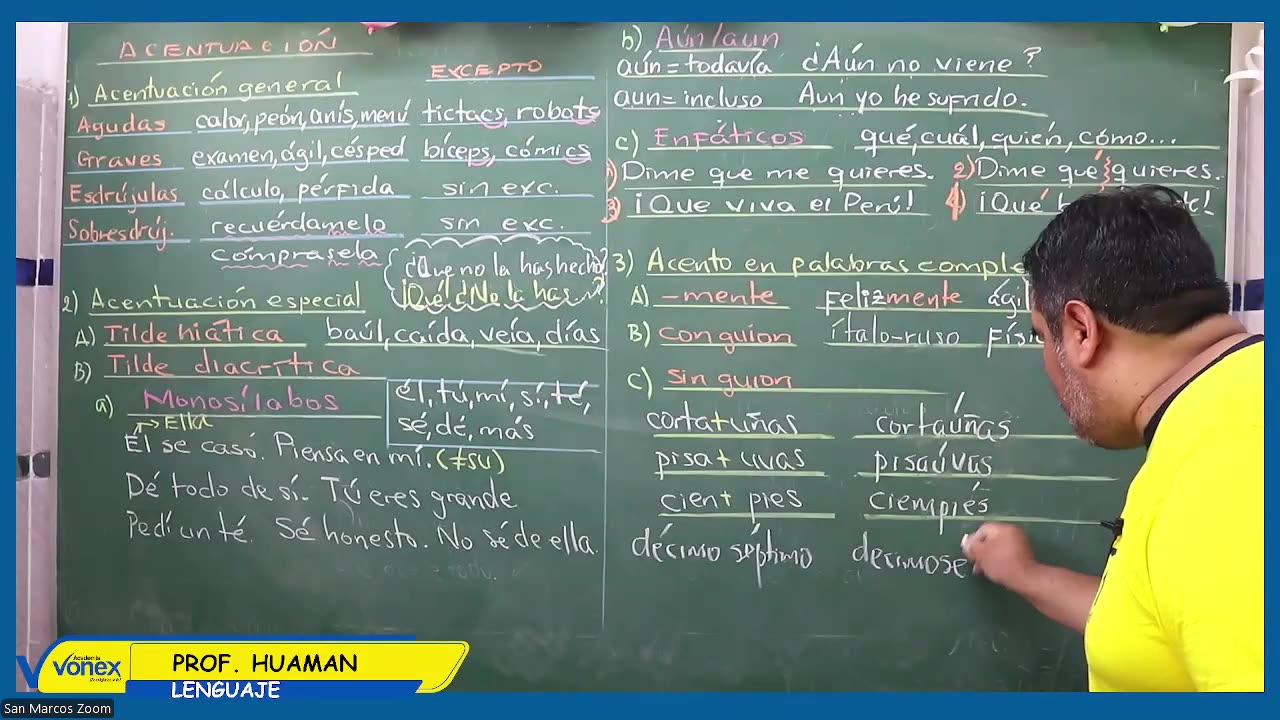 ACENTUACIÓN
1) Acentuación general
EXCEPTO
Agudas calor, peón, anís, menú tictacs, robots
Graves examen, ágil, césped bíceps, cómics
Esdrújulas cálculo, pérfida sin exc.
Sobresdrúj. recuérdamelo sin exc.
cómprasela
¿Que no la has hecho?
2) Acentuación especial
A) Tilde hiática baúl, caída, veía, días
B) Tilde diacrítica
a) Monosílabos
él, tú, mí, sí, té,
sé, dé, más
→ Ella
Él se casó. Piensa en mí. (≠su)
Dé todo de sí. Tú eres grande
Pedí un té. Sé honesto. No sé de ella.
b) Aún/aun
aún = todavía ¿Aún no viene?
aun = incluso Aun yo he sufrido.
c) Enfáticos qué, cuál, quién, cómo...
1) Dime que me quieres. 2) Dime qué quieres.
3) ¡Que viva el Perú! 4) ¡Qué
3) Acento en palabras
A) -mente Felizmente
B) con guion ítalo-ruso
C) sin guion
corta + uñas cortaúñas
pisa + uvas pisaúvas
cien + pies ciempiés
décimo séptimo decimose
Academia
Vonex
PROF. HUAMAN
LENGUAJE
San Marcos Zoom